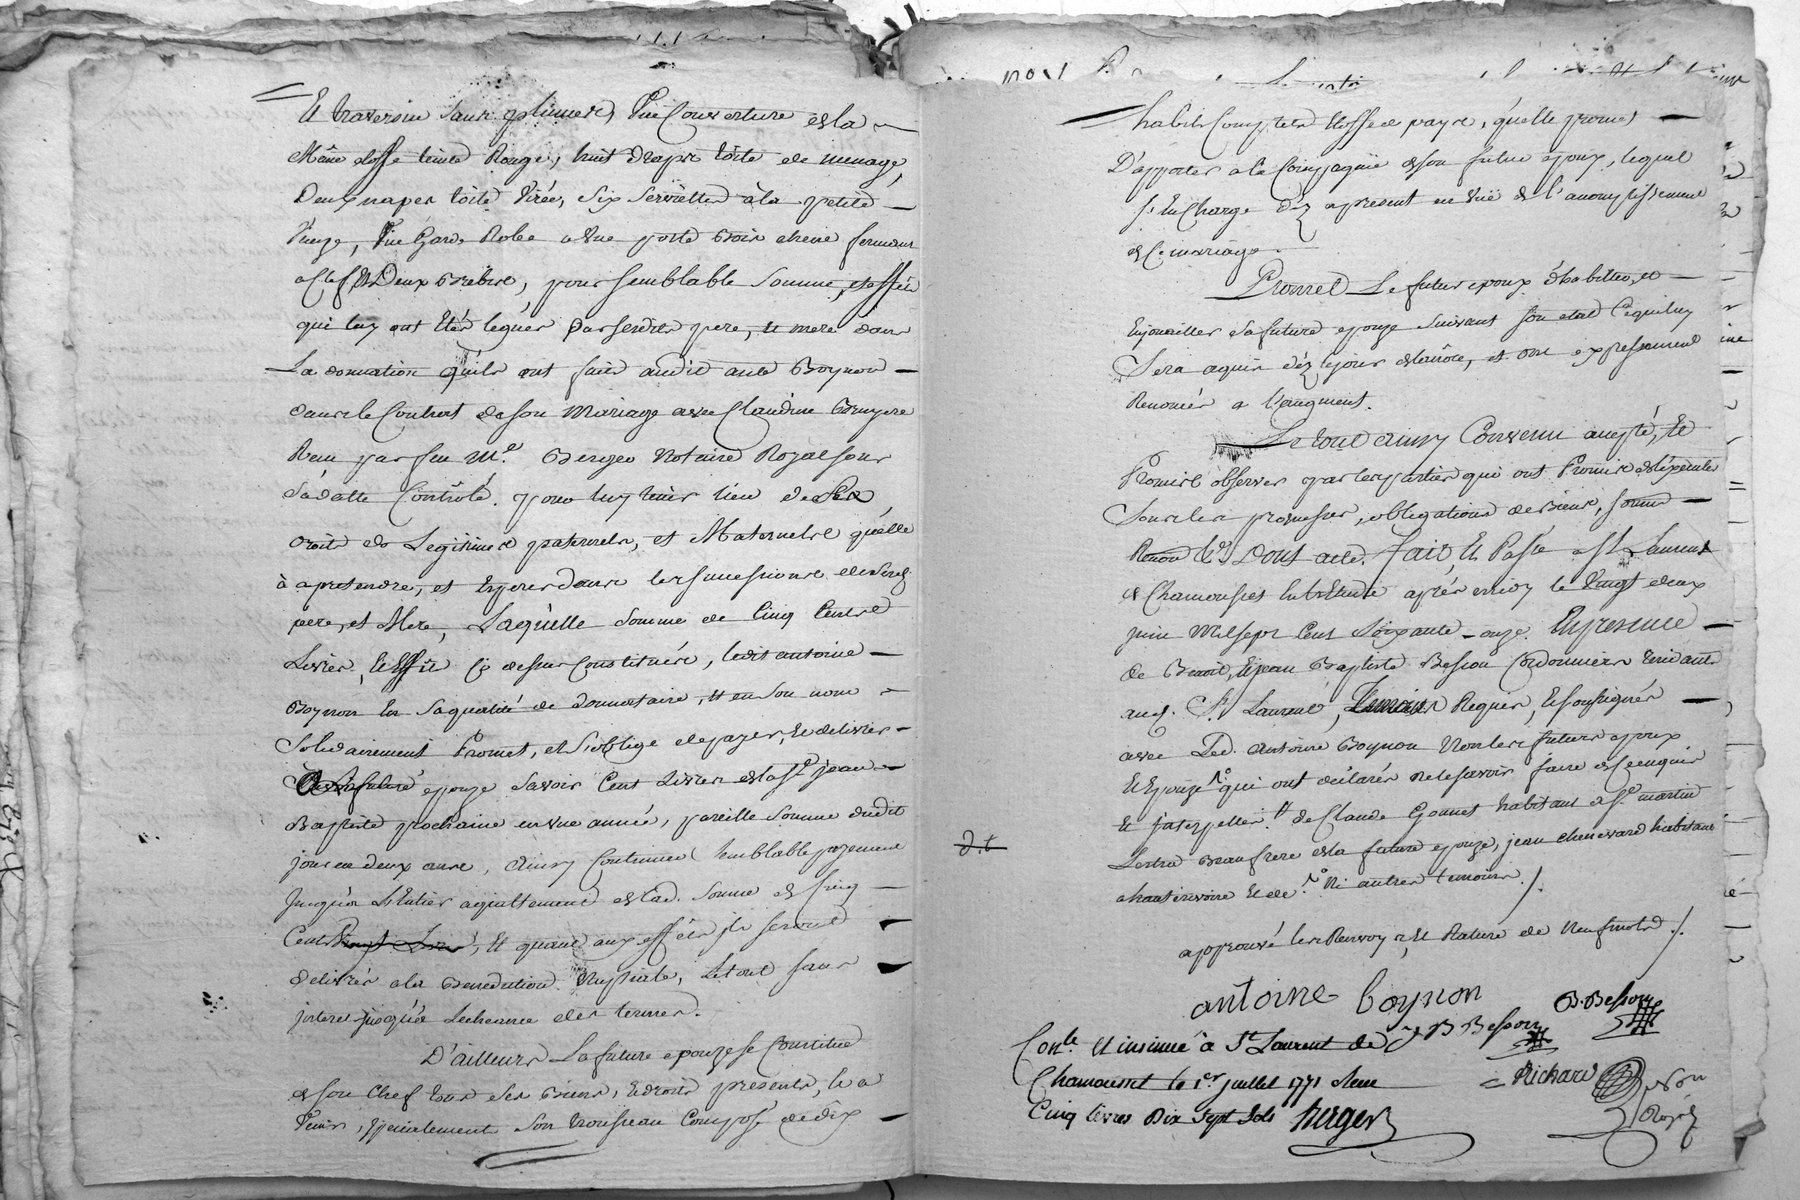 Et traversin sans plumes, Une Couverture de la
Même etoffe teinte Rouge, huit draps toile de menage,
Deux napes toile Virée, Six serviettes a la petite
Venize, Une Garde Robe a une porte bois chene fermant
a Clef Et Deux Brebis, pour semblable somme, et effets
qui luy ont Etés legués par sesdits pere, et mere dans
La donnation qu'ils ont fait audit ante Boynon
dans le Contract de son Mariage avec Claudine Bruyere
Recu par feu Me. Notaire Royal sous
Sa datte Controlé. pour luy tenir lieu de Ses
droits de Legitimes paternels, et Maternels qu'elle
à a pretendre, et Esperer dans les successions de sesd.
pere, et Mere, Laquelle somme de Cinq Cents
Livres, et Effets Cy dessus Constitués, ledit antoine
Boynon En Sa qualité de donnataire, et en son nom
Solidairement Promet, et s'oblige de payer, et delivrer
a la future epouze Savoir Cent Livres a la St. jean
Baptiste prochaine en une année, pareille Somme dudit
jour en deux ans, Ainsy Continuer semblable payement
jusqu'a L'Entier aquittement de lad. somme de Cinq
Cents, Et quant aux effets ils seront
delivrés a la Benediction Nuptiale, Le tout sans
jnterets jusqu'a Lecheance des termes.
D'ailleurs La future epouze se Constitue
de son Chef tous ses Biens, et droits presents, et a
Venir, specialement Son trousseau Composé de dix
habits Complets Etoffe de pays, qu'elle promet
D'apporter a la Compagnie de son futur epoux, lequel
s'En Charge déz a present en Vuë de l'accomplissement
de Ce mariage.
Promet Le futur epoux d'habiller, et
Enjouailler Sa future epouze Suivant Son etat Ce qui luy
Sera aquis déz le jour des nôces, et ont expressement
Renoncés a l'augment.
Le tout ainsy Convenu accepté, et
Promis observer par les parties qui ont Promis d'Executer
Sous les promesses, obligations de Biens, soum
Renon. Dont acte. Fait, Et Passé a St. Laurent
de Chamousset En L'Etude après midy le Vingt deux
juin Mil sept Cent Soixante-onze. En presence
de Benoit, Et jean Baptiste Besson Cordonniers Residants
aud. St. Laurent, Temoins Requis, Et soussignés
avec Led. Antoine Boynon Non les futurs epoux
Et Epouze qui ont declarés ne le savoir faire de Ce enquis
Et jnterpellés de Claude Gonnet habitant a St. martin
Lestra Beaufrere de la future epouze, jean chenevard habitant
a hauterivoire Ni autres temoins ./.
approuvé les Renvoy, Et Rature de Neuf mots ./.
antoine boynon
B. Besson
J B Besson
Conle. Et insinué à St. Laurent de
Chamousset le 1er juillet 1771 Recu
Cinq livres Dix Sept Sols
Richard